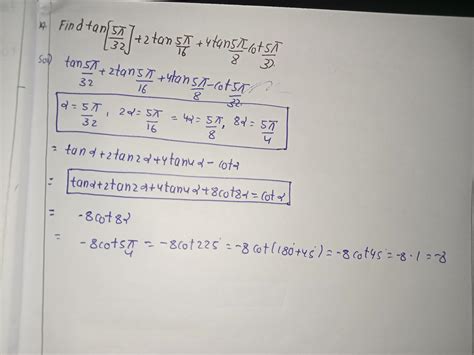 Find tan[5π/32] + 2tan 5π/16 + 4tan 5π/8 - cot 5π/32
tan 5π/32 + 2tan 5π/16 + 4tan 5π/8 - cot 5π/32
α = 5π/32, 2α = 5π/16 = 4α = 5π/8, 8α = 5π/4
= tanα + 2tan2α + 4tan4α - cotα
= tanα + 2tan2α + 4tan4α + 8cot8α = cotα
= -8cot8α
= -8cot 5π/4 = -8cot225° = -8cot(180°+45°) = -8cot45 = -8·1 = -8